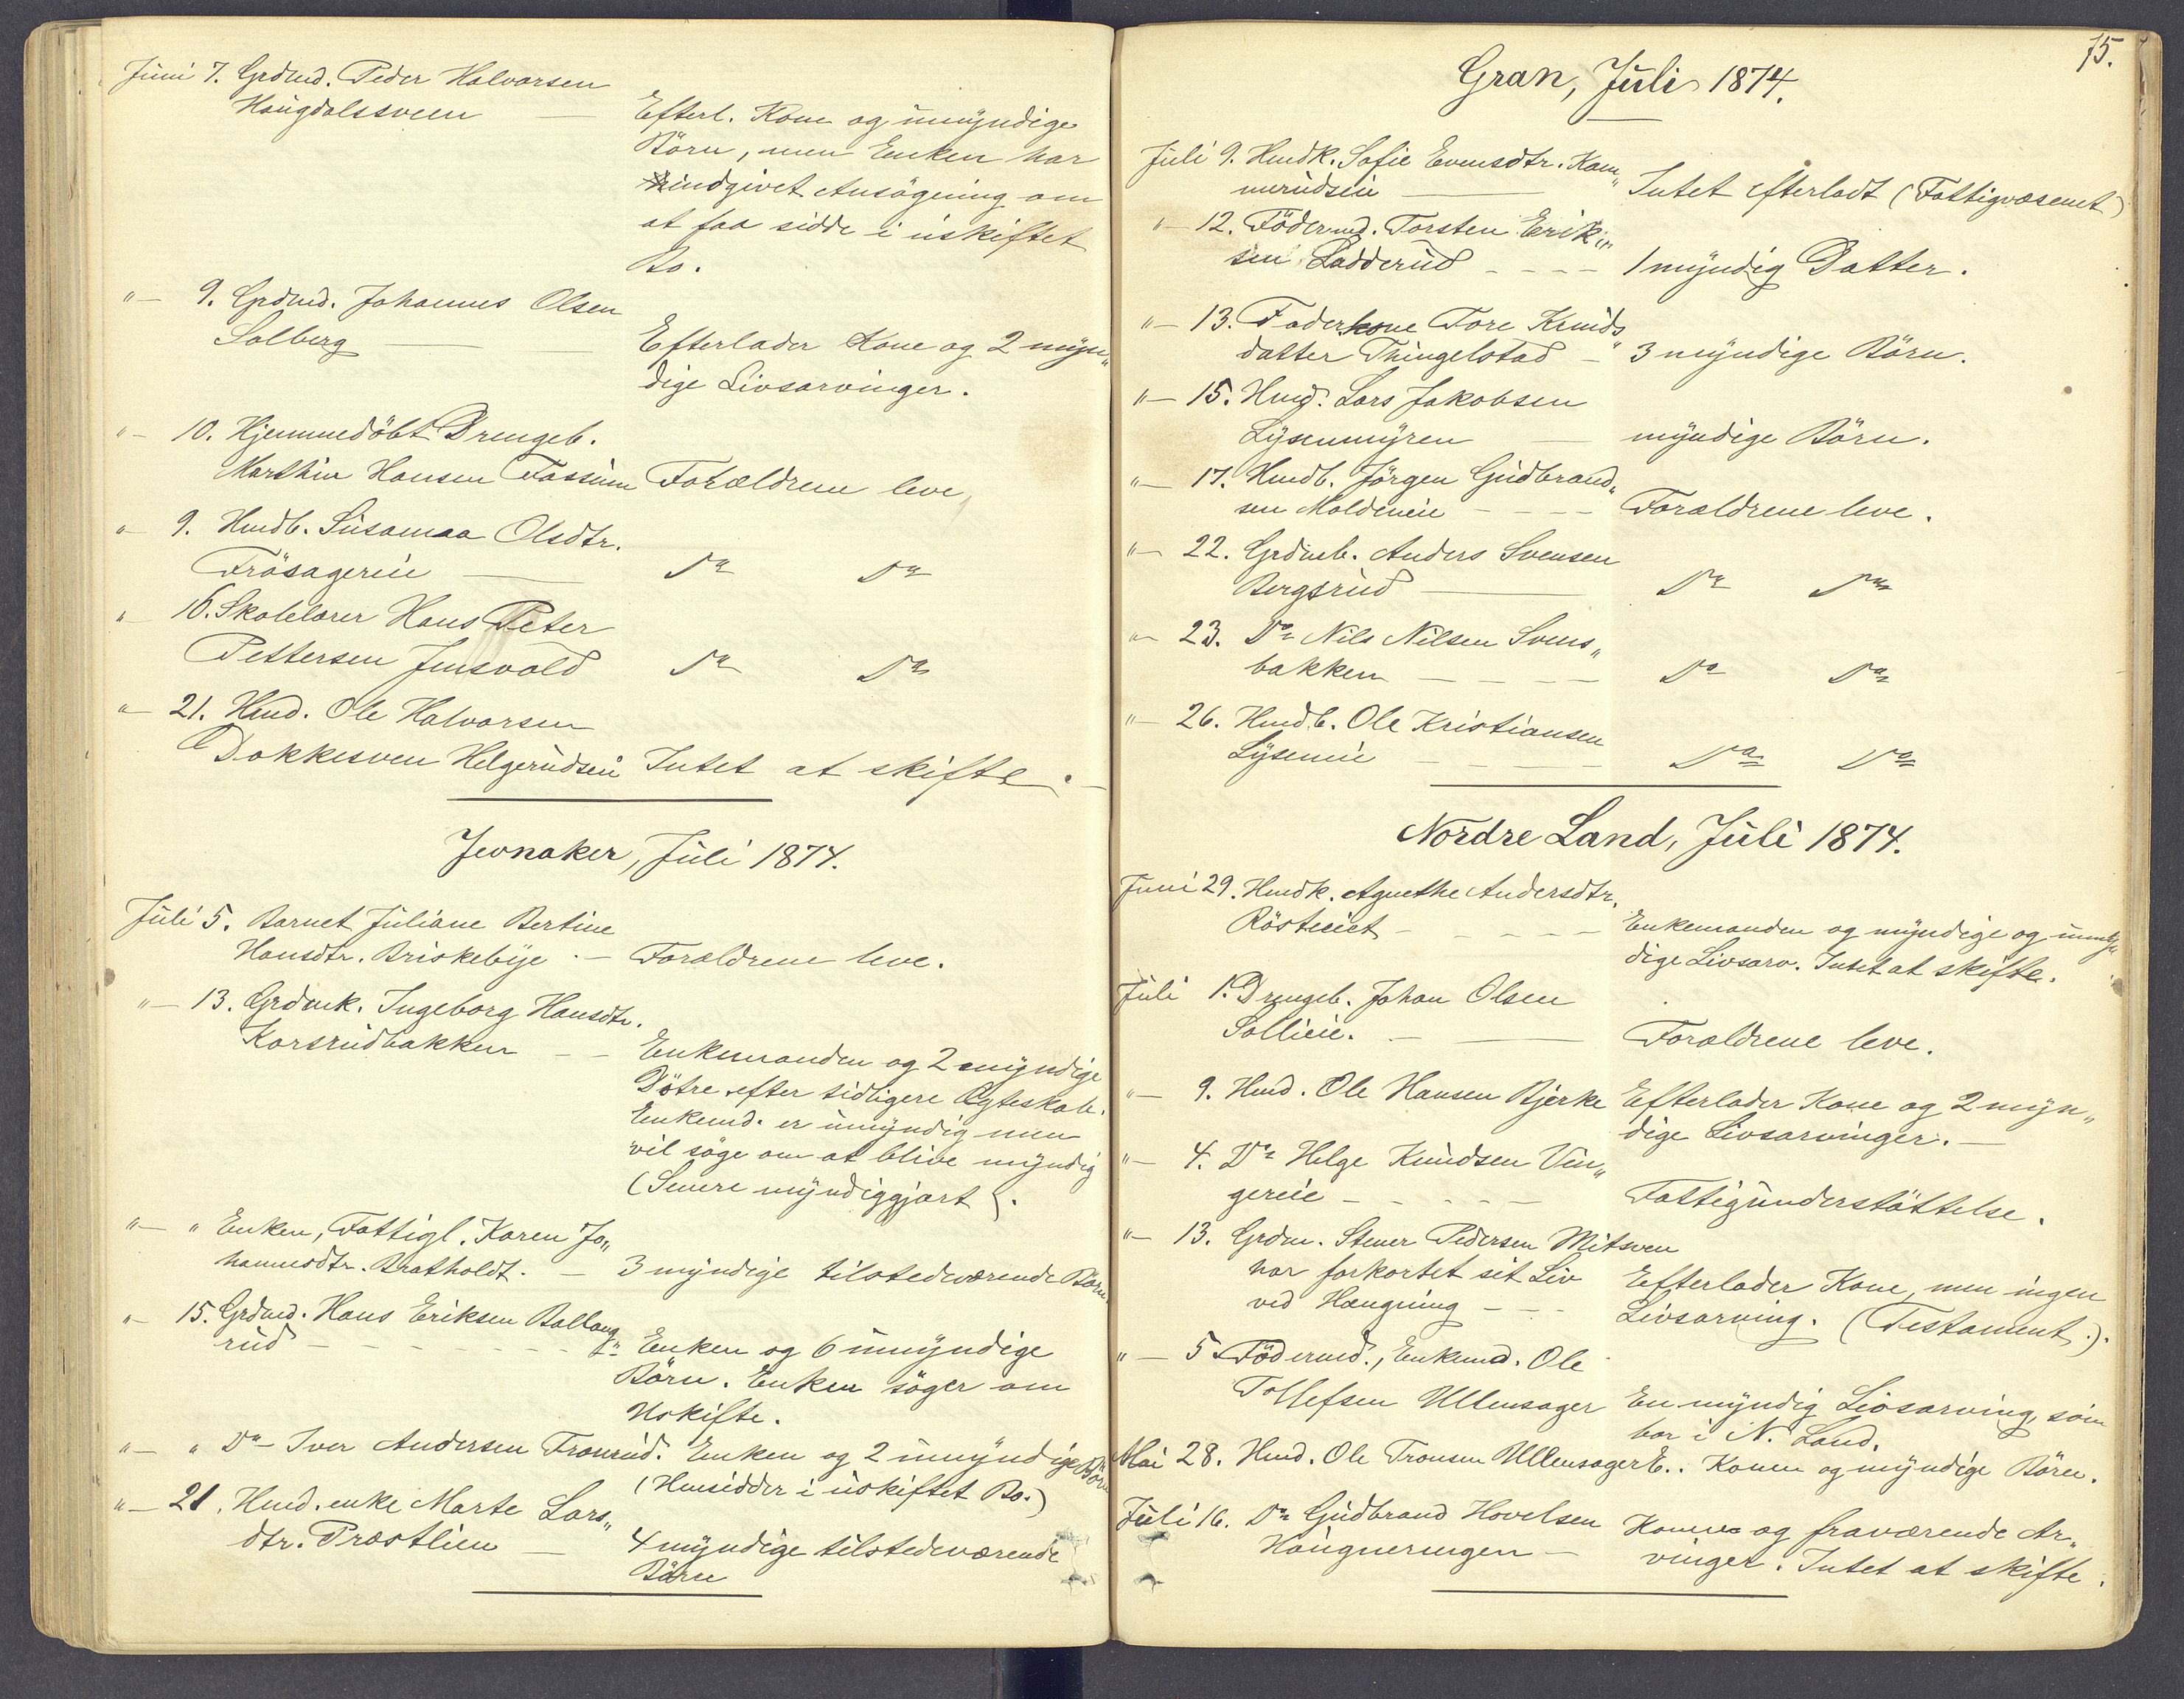 Juni 7. Grdmd. Peder Halvorsen
Haugdalssveen — Efterl. Kone og umyndige
Börn, men Enken har
indgivet Ansögning om
at faa sidde i uskiftet
Bo.
"— 9. Grdmd. Johannes Olsen
Solberg — Efterlader Kone og 2 myn„
dige Livsarvinger.
"— 10. Hjemmedöbt Drengeb.
Marthin Hansen Fossum Forældrene leve,
"— 9. Hmdb. Susanna Olsdtr.
Frösagereie — Do Do
"— 16. Skolelærer Hans Peter
Pettersen Jensvold Do Do
"— 21. Hmd. Ole Halvorsen
Dokkesveen Helgerudseie Intet at skifte.—
Jevnaker, Juli 1874.
Juli 5. Barnet Juliane Bertine
Hansdtr. Briskebye — Forældrene leve.
"— 13. Grdmk. Ingeborg Hansdtr.
Korsrudbakken — — Enkemanden og 2 myndige
Dötre efter tidligere Ægteskab.
Enkemd. er umyndig men
vil söge om at blive myndig
(Senere myndiggjort).
"— " Enken, Fattigl. Karen Jo„
hannesdtr. Bratholdt. — 3 myndige tilstedeværende Börn.
"— 15. Grdmd. Hans Eriksen Ballang„
rud — — — Enken og 6 umyndige
Börn. Enken söger om
Uskifte.
"— " Do Iver Andersen Fronrud. Enken og 2 umyndige Börn
(Hensidder i uskiftet Bo.)
"— 21. Hmd. enke Marte Lars„
dtr. Præstlien — 4 myndige tilstedeværende
Börn
75.
Gran, Juli 1874.
Juli 9. Hmdk. Sofie Evensdtr. Ram„
merudseie — Intet efterladt (Fattigvæsenet)
"— 12. Födermd. Torsten Erik„
sen Ladderud — — — 1 myndig Datter.
"— 13. Foderkone Tore Knuds„
datter Thingelstad — 3 myndige Börn.
"— 15. Hmd. Lars Jakobsen
Lysenmyren — myndige Börn.
"— 17. Hmdb. Jörgen Gudbrand„
sen Moldeneie — — — Forældrene leve.
"— 22. Grdmb. Anders Svensen
Bergsrud — Do Do
"— 23. Do Nils Nilsen Svens„
bakken — — — — Do Do
"— 26. Hmdb. Ole Kristiansen
Lyseneie — — — Do Do
Nordre Land, Juli 1874.
Juni 29. Hmdk. Agnethe Andersdtr.
Rösteeiet — — — — Enkemanden og myndige og umyn„
dige Livsarv. Intet at skifte.
Juli 1. Drengeb. Johan Olsen
Sollieie. — — Forældrene leve.
"— 9. Hmd. Ole Hansen Bjerke Efterlader Kone og 2 myn„
dige Livsarvinger.—
"— 4. Do Helge Knudsen Vin„
gereie — — — — Fattigunderstöttelse.
"— 13. Grdm. Stener Pedersen Mitsveen
har forkortet sit Liv Efterlader Kone, men ingen
ved Hængning — — — Livsarving. (Testament.).
"— 5. Födermd., Enkemd. Ole
Tollefsen Ullensager En myndig Livsarving, som
bor i N. Land.
Mai 28. Hmd. Ole Tronsen Ullensager E.. Konen og myndige Börn.
Juli 16. Do Gudbrand Hovelsen Konen og fraværende Ar„
Haugneringen — vinger. Intet at skifte.